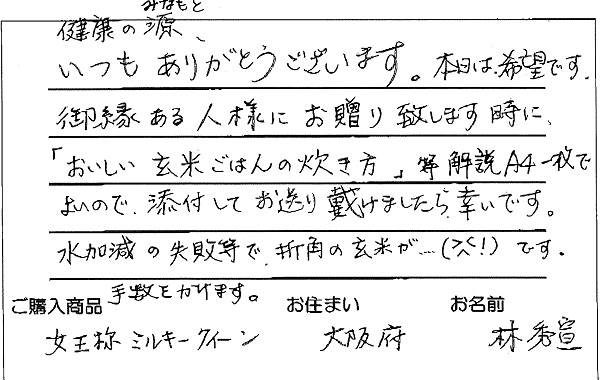 みなもと
健康の源、
いつもありがとうございます。本日は、希望です。
御縁ある人様にお贈り致します時に、
「おいしい玄米ごはんの炊き方」等解説A4一枚で
よいので、添付してお送り戴けましたら、幸いです。
水加減の失敗等で、折角の玄米が…(>_<!)です。
手数をかけます。
ご購入商品 お住まい お名前
女王称 ミルキークイーン 大阪府 林秀宣